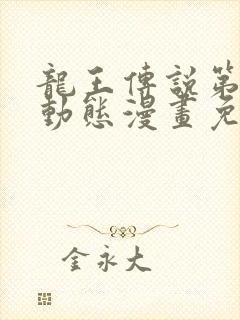 龍王傳說第
動態漫畫免
金永大